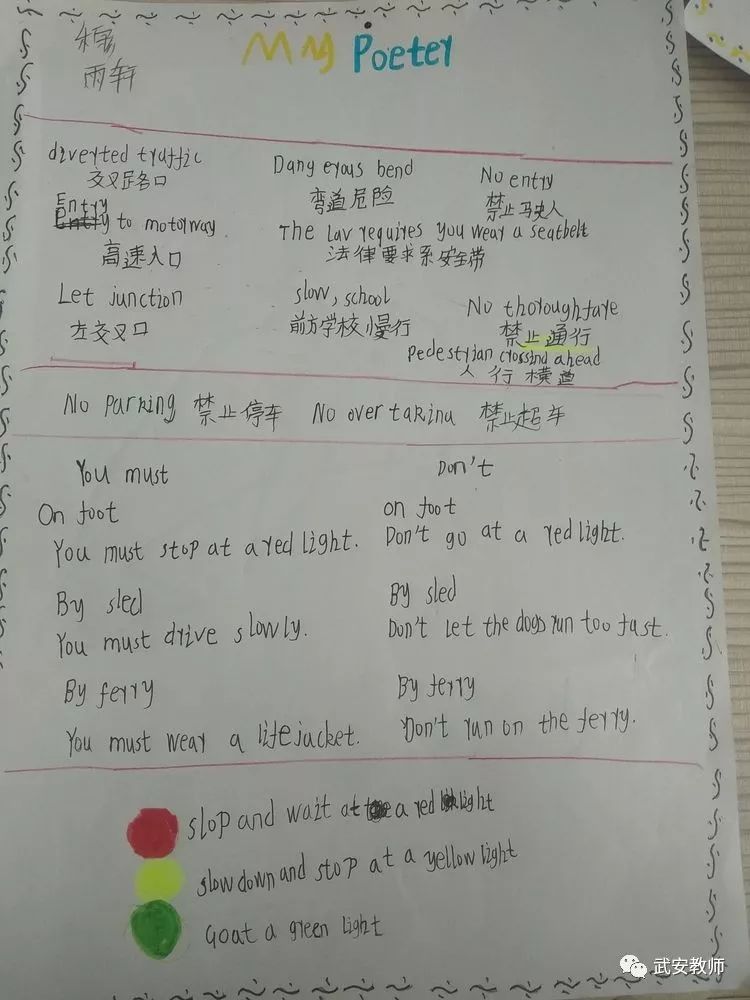 雨轩
My Poeter
diverted traffic
交叉路口
Dangerous bend
弯道危险
No entry
禁止马史人
Entry
Entry to motorway.
高速入口
The Lav requires you wear a seatbelt
法律要求系安全带
Let junction
左交叉口
slow, school
前方学校慢行
No thoroughfare
禁止通行
Pedestrian crossind ahead
人行横道
No Parking 禁止停车 No over takina 禁止超车
You must
Don't
On foot
You must stop at a red light.
on foot
Don't go at a red light.
By sled
You must drive slowly.
By sled
Don't Let the dogs run too fast.
By ferry
You must wear a life jacket.
By ferry
Don't run on the ferry.
slop and wait at a red light
slow down and stop at a yellow light
Goat a green light
武安教师